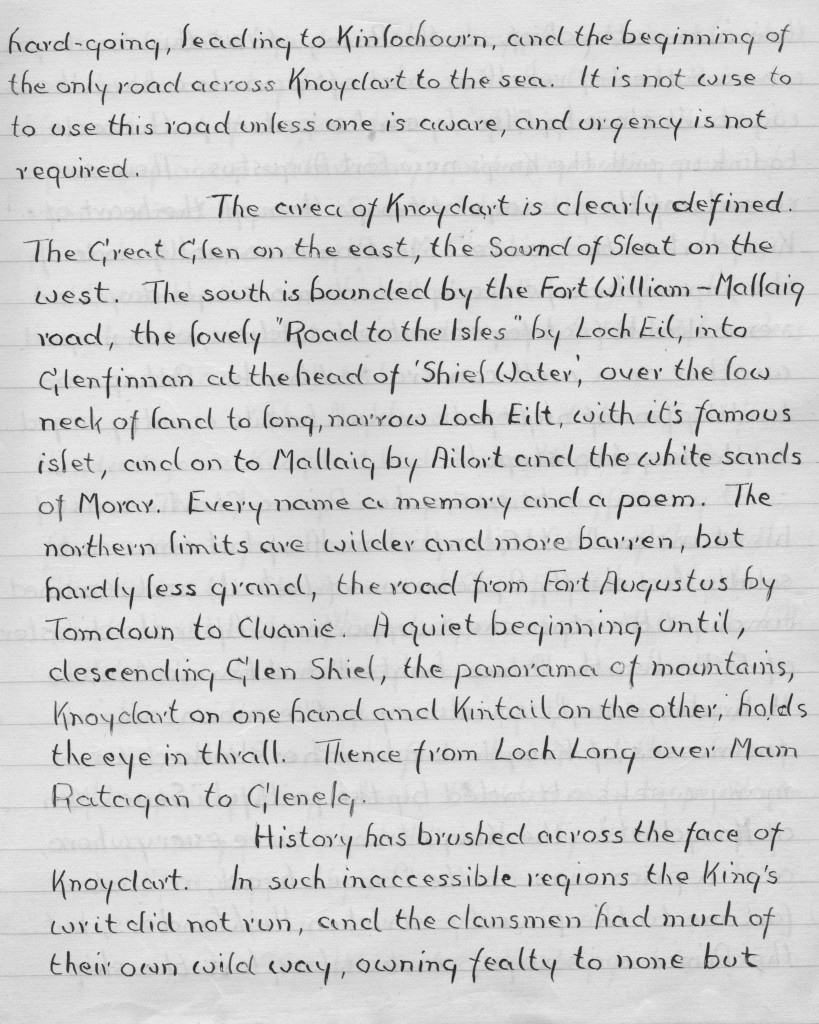 hard-going, leading to Kinlochourn, and the beginning of
the only road across Knoydart to the sea. It is not wise to
to use this road unless one is aware, and urgency is not
required.
The area of Knoydart is clearly defined.
The Great Glen on the east, the Sound of Sleat on the
west. The south is bounded by the Fort William-Mallaig
road, the lovely "Road to the Isles" by Loch Eil, into
Glenfinnan at the head of 'Shiel Water', over the low
neck of land to long, narrow Loch Eilt, with it's famous
islet, and on to Mallaig by Ailort and the white sands
of Morar. Every name a memory and a poem. The
northern limits are wilder and more barren, but
hardly less grand, the road from Fort Augustus by
Tomdoun to Cluanie. A quiet beginning until,
descending Glen Shiel, the panorama of mountains,
Knoydart on one hand and Kintail on the other, holds
the eye in thrall. Thence from Loch Long over Mam
Ratagan to Glenelg.
History has brushed across the face of
Knoydart. In such inaccessible regions the King's
writ did not run, and the clansmen had much of
their own wild way, owning fealty to none but